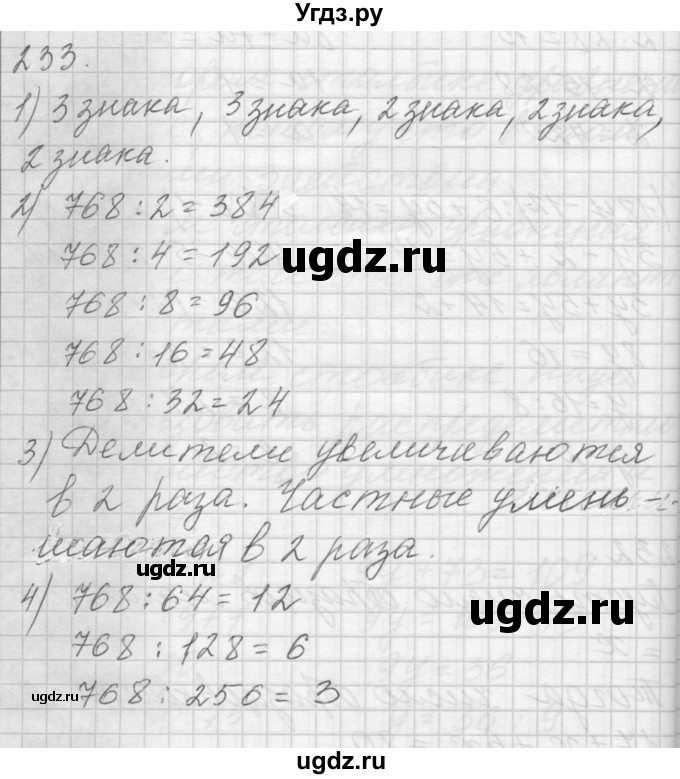 Угдз.ру
233.
1) 3 знака, 3 знака, 2 знака, 2 знака,
2 знака.
2) 768 : 2 = 384
768 : 4 = 192
ugdz.ru
768 : 8 = 96
768 : 16 = 48
768 : 32 = 24
3) Делители увеличиваются
в 2 раза. Частные умень-
шаются в 2 раза.
ugdz.ru
4) 768 : 64 = 12
ugdz.ru
768 : 128 = 6
ugdz.ru
768 : 256 = 3
ugdz.ru